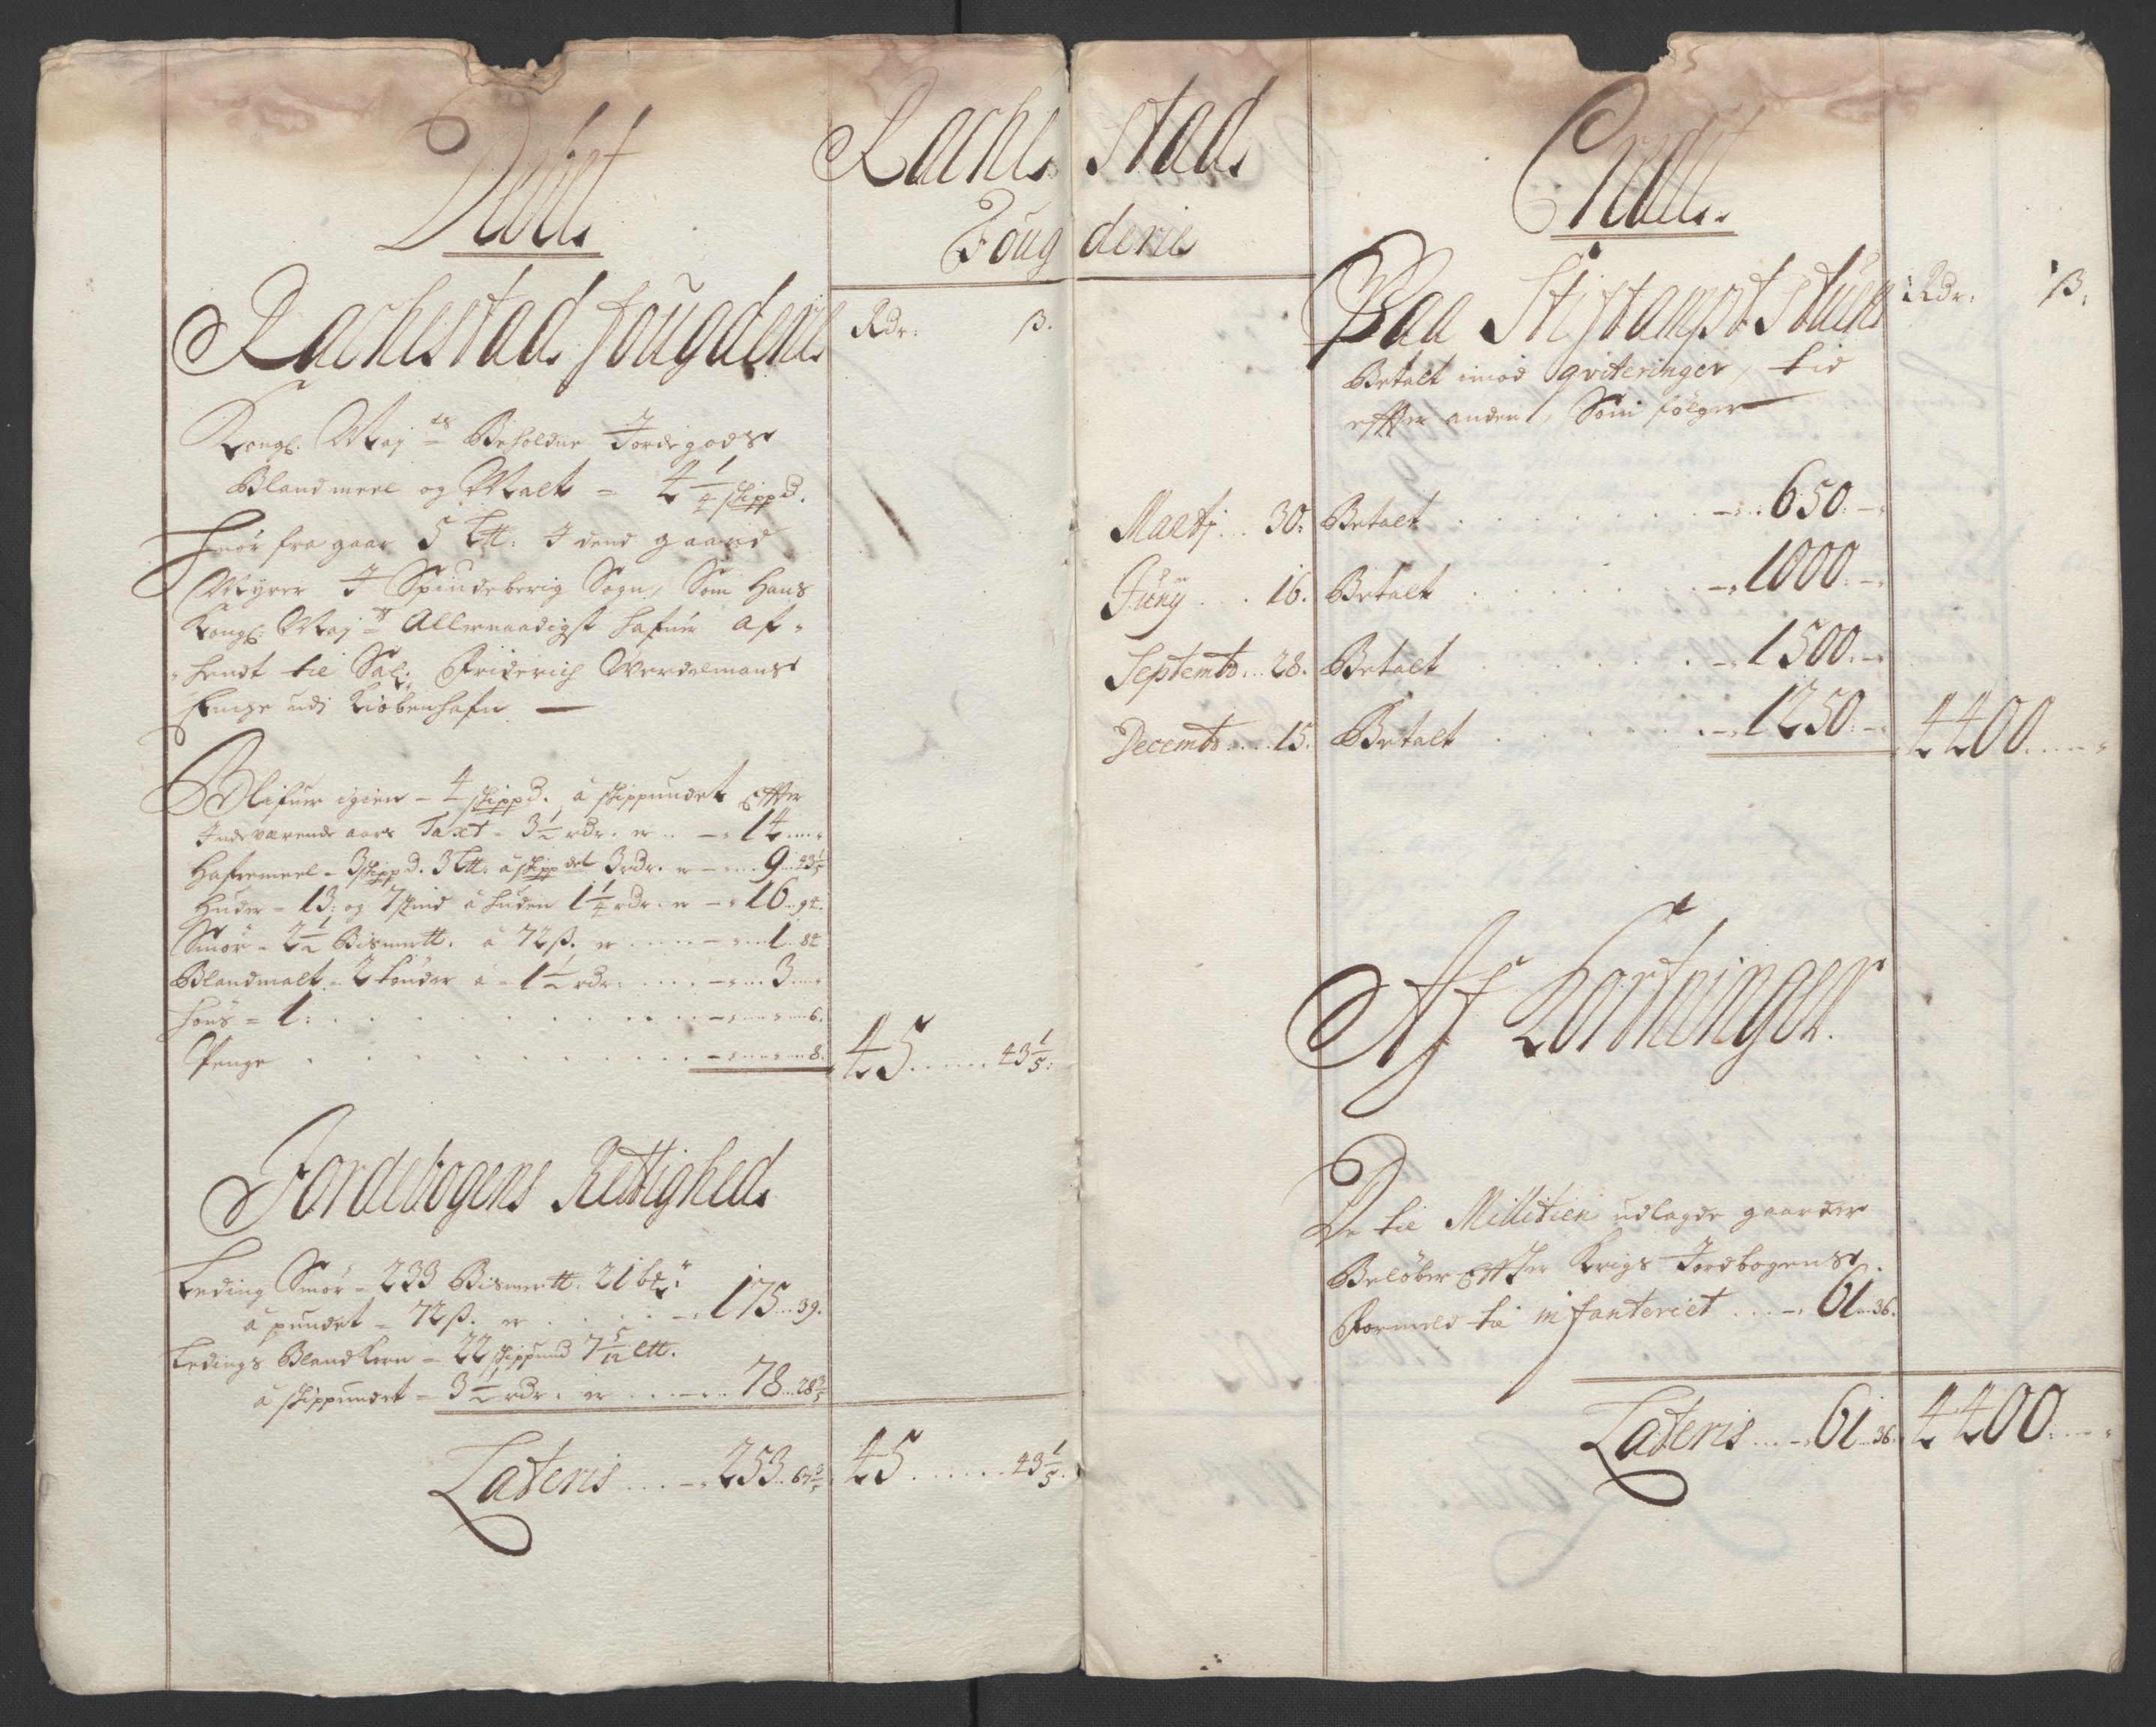 Debet
Rachestad
Fougderie
Rachestad fougderie
Rdr: ß.
Kongl. Maj:ts Beholdne Jordegods
Blandmeel og Malt - 4 1/4 skippd.
Huor fra gaar 5 Ltt: I dend gaard
Myrer I Spindeberig Sogn, Som Hans
Kongl: Maj:tt Allernaadigst hafuer af-
hendt til Sal: Friderich Werdelmans
udi Kiøbenhafn
Blifuer igien - 4 skippd. á skippundet Effter
Indeværende aars Taxt - 3 1/2 rdr. er .. - 14 ...
Hafremeel - 3 skippd. 3 Ltt: á skippdet 3 rdr. er - ... 9 .. 43 1/5
Huder - 13: og 7 skind á huden 1 1/4 rdr. er - 16 .. 94.
Smør - 2 1/2 Bismertt. á 72 ß. er .... - ... 1 .. 84
Blandmalt - 2 tønder á - 1 1/2 rdr. .... - ... 3 ....
Høns - 1: . . . . . . . 6.
Penge . . . . . . . 8. 45 ...... 43 1/5:
Jordebogens Rettighed
Leding Smør - 233 Bismertt. 21
á pundet - 72 ß. er . . . . - 175 ... 39.
Ledings Blandkorn - 22 skippund 7 5/12 Ltt.
á skippundet - 3 1/2 rdr. er .... 78 ... 28 3/5
Lateris .... - 253 .. 67 3/5 45 ...... 43 1/5.
Credit
Paa Stiftampt stuen Rdr: ß:
Betalt imod qviteringer, tid
effter anden, Som følger
Martj .. 30. Betalt . . . . . 650. -
Junij ... 16. Betalt . . . . . 1000. -
Septembr .. 28. Betalt . . . . . 1500. -
Decembr .... 15. Betalt . . . . . 1250. - 4400. ...
Af Kortninger.
De til Militien udlagde gaarder
Beløber Effter Krigs Jordbogens
Formeld til infanteriet ... - 61 .. 36.
Lateris ... - 61 .. 36. 4400. ...